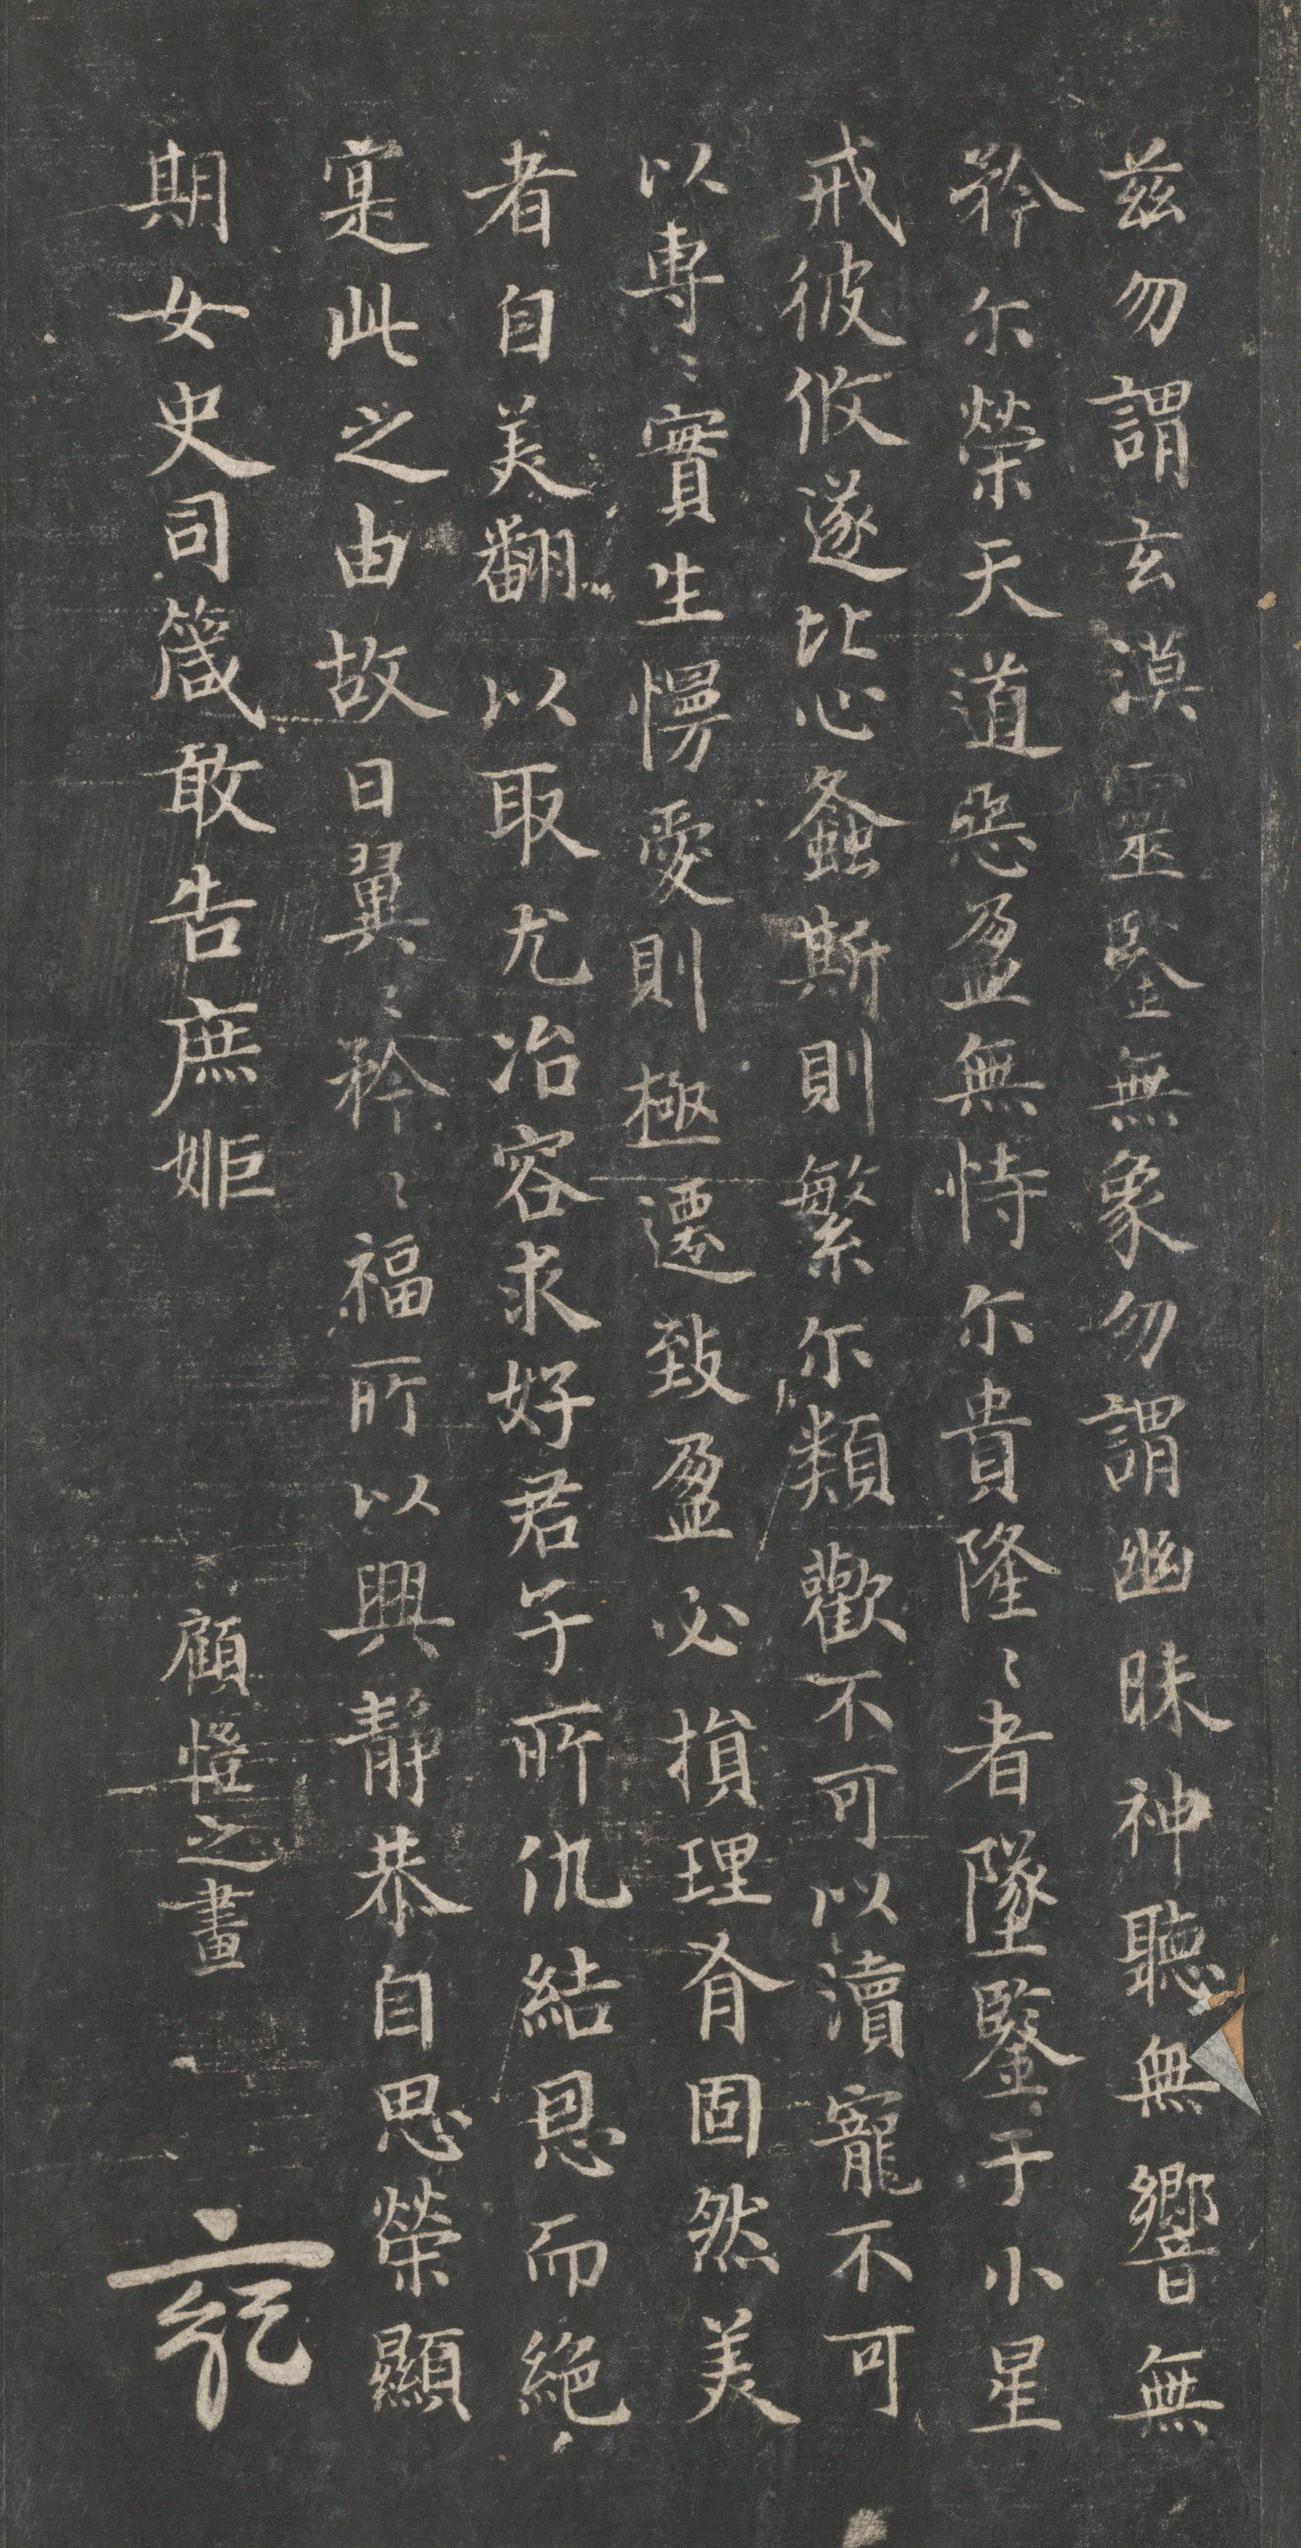 茲勿謂玄漠靈鑒無象勿謂幽昧神聽無響無
矜尔榮天道惡盈無恃尔貴隆〻者墜鑒于小星
戒彼攸遂比心螽斯則繁尔類歡不可以瀆寵不可
以專〻實生慢愛則極遷致盈必損理有固然美
者自美翩以取尤冶容求好君子所仇結恩而絶
寔此之由故曰翼〻矜〻福所以興靜恭自思榮顯
期女史司箴敢告庶姬
顧愷之畫